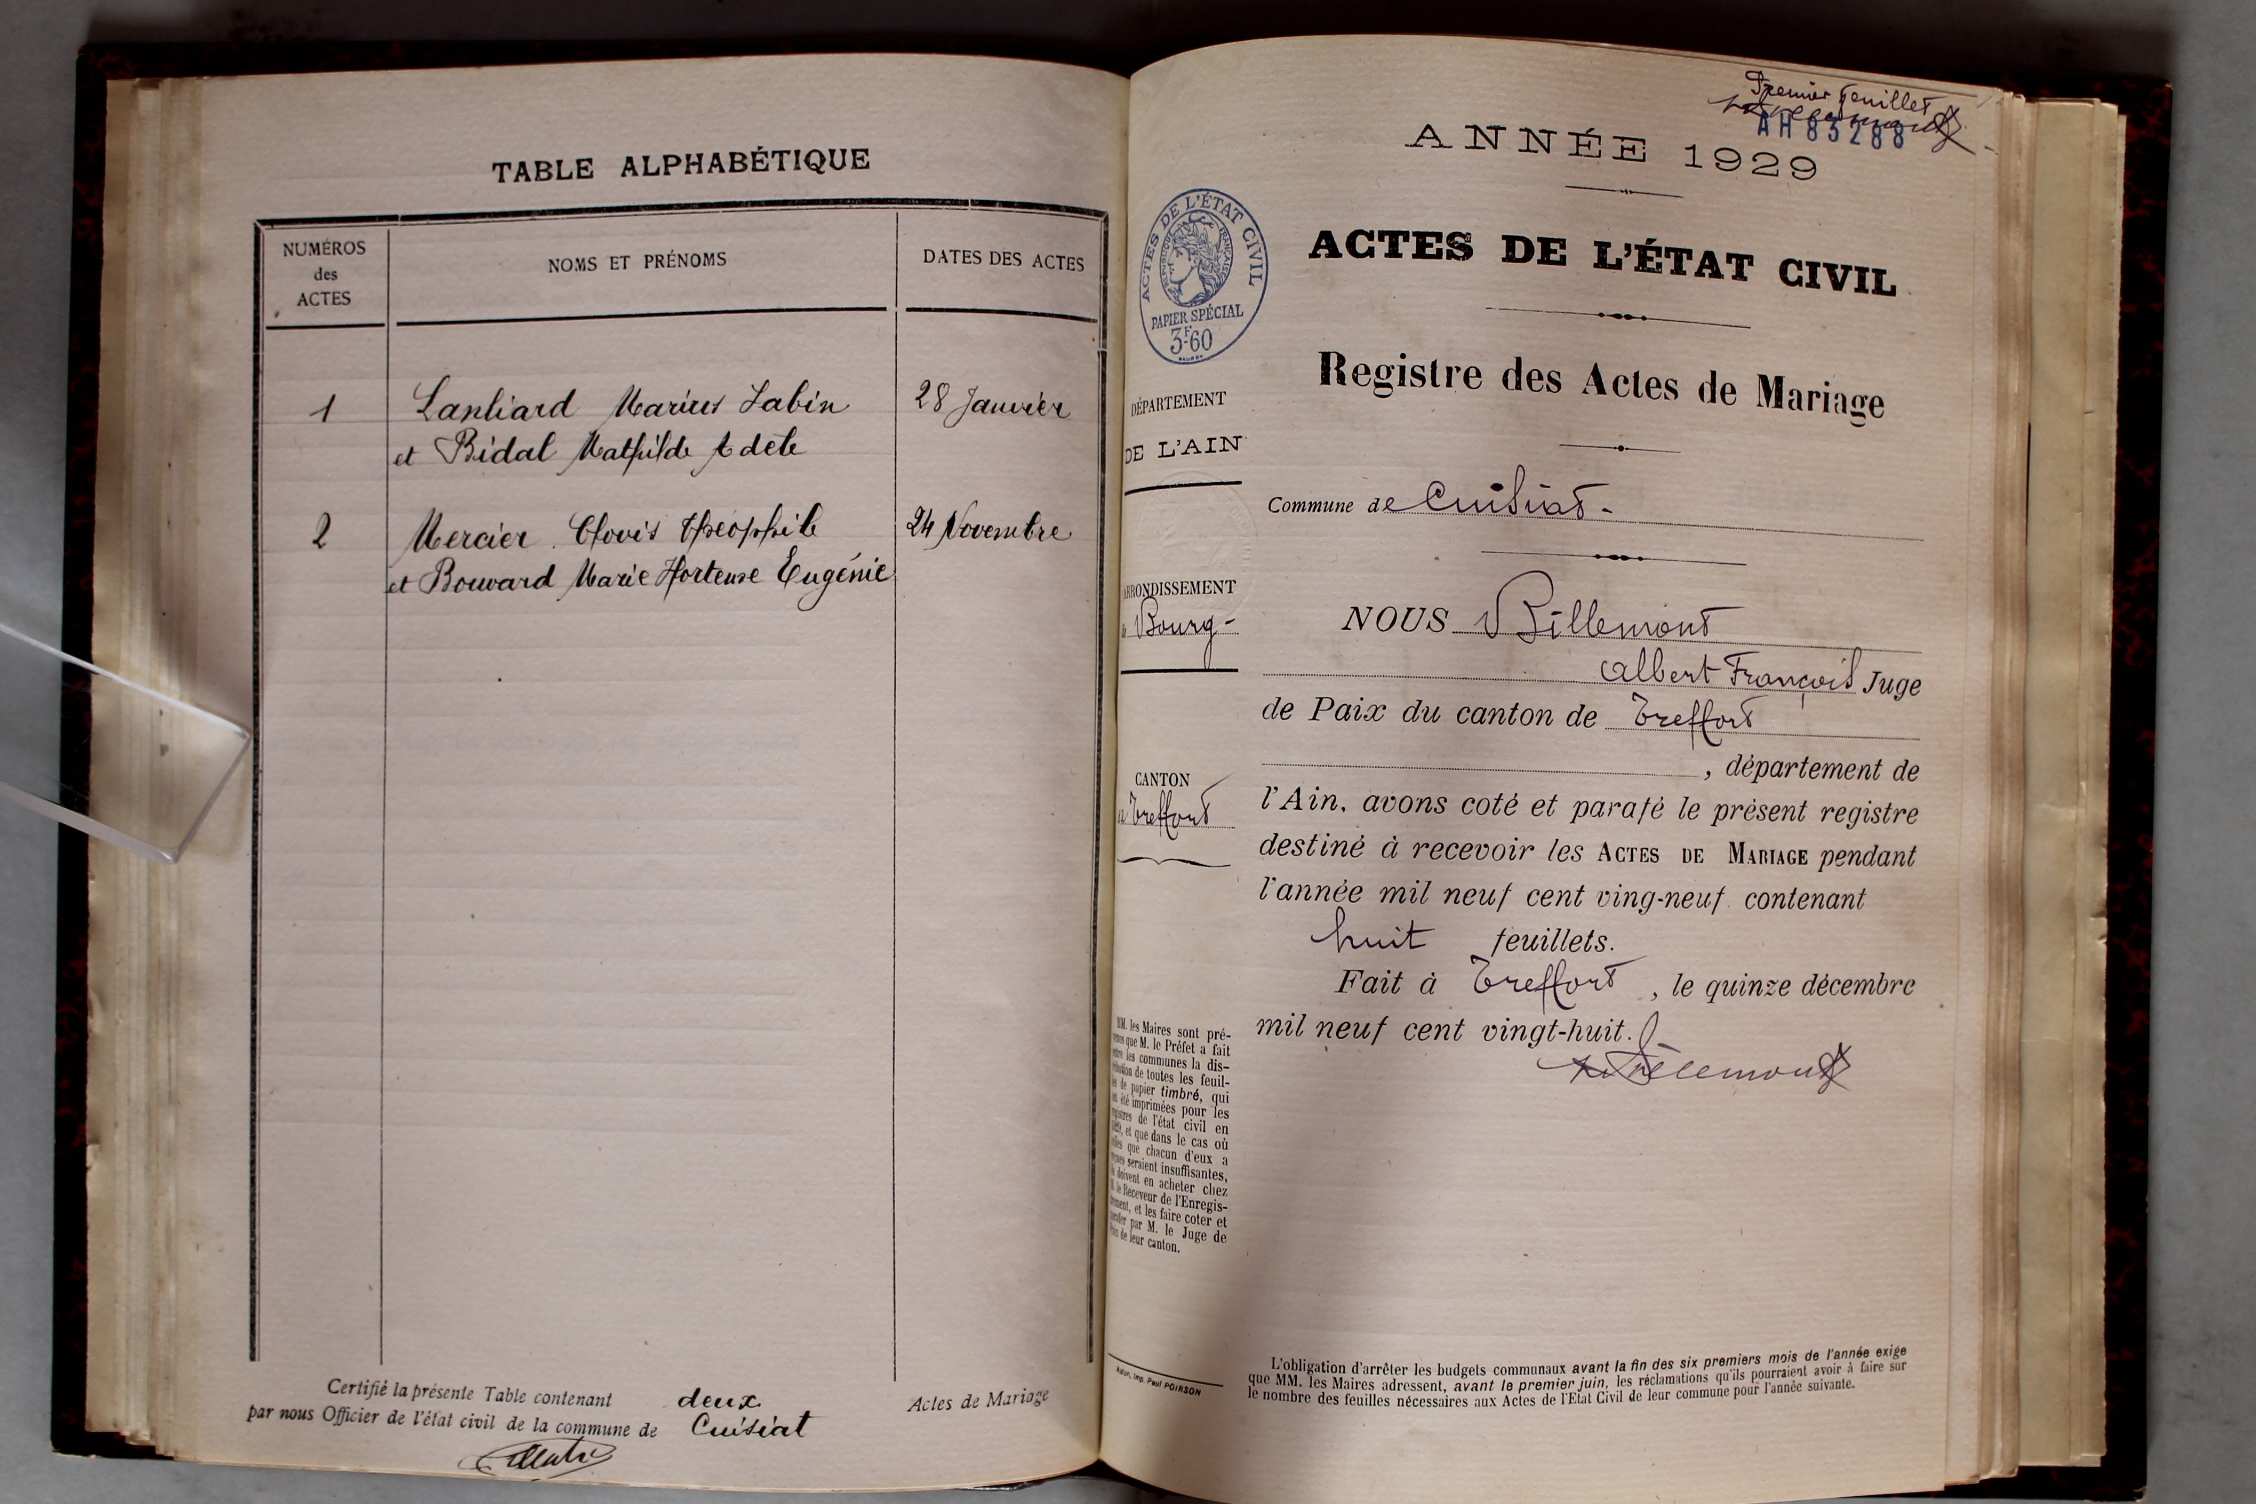 TABLE ALPHABÉTIQUE
NUMÉROS
des
ACTES
NOMS ET PRÉNOMS
DATES DES ACTES
1
Marius Sabin
28 Janvier
et Bidal Mathilde Adele
2
Mercier Clovis Théophile
24 Novembre
et Bouvard Marie Hortense Eugénie
Certifié la présente Table contenant deux Actes de Mariage
par nous Officier de l'état civil de la commune de Cuisiat
Premier feuillet
AH 83288
ANNÉE 1929
ACTES DE L'ÉTAT CIVIL
RÉPUBLIQUE FRANÇAISE
PAPIER SPÉCIAL
3F.60
ACTES DE L'ÉTAT CIVIL
Registre des Actes de Mariage
DÉPARTEMENT
DE L'AIN
Commune de Cuisiat.
ARRONDISSEMENT
de Bourg
CANTON
de Treffort
NOUS Billemont
Albert François Juge
de Paix du canton de Treffort
, département de
l'Ain, avons coté et parafé le présent registre
destiné à recevoir les ACTES DE MARIAGE pendant
l'année mil neuf cent ving-neuf contenant
huit feuillets.
Fait à Treffort, le quinze décembre
mil neuf cent vingt-huit.
MM. les Maires sont pré-
que M. le Préfet a fait
les communes la dis-
de toutes les feuil-
de papier timbré, qui
été imprimées pour les
de l'état civil en
et que dans le cas où
que chacun d'eux a
seraient insuffisantes,
doivent en acheter chez
le Receveur de l'Enregis-
et les faire coter et
par M. le Juge de
de leur canton.
Imp. Paul POIRSON
L'obligation d'arrêter les budgets communaux avant la fin des six premiers mois de l'année exige
que MM. les Maires adressent, avant le premier juin, les réclamations qu'ils pourraient avoir à faire sur
le nombre des feuilles nécessaires aux Actes de l'Etat Civil de leur commune pour l'année suivante.